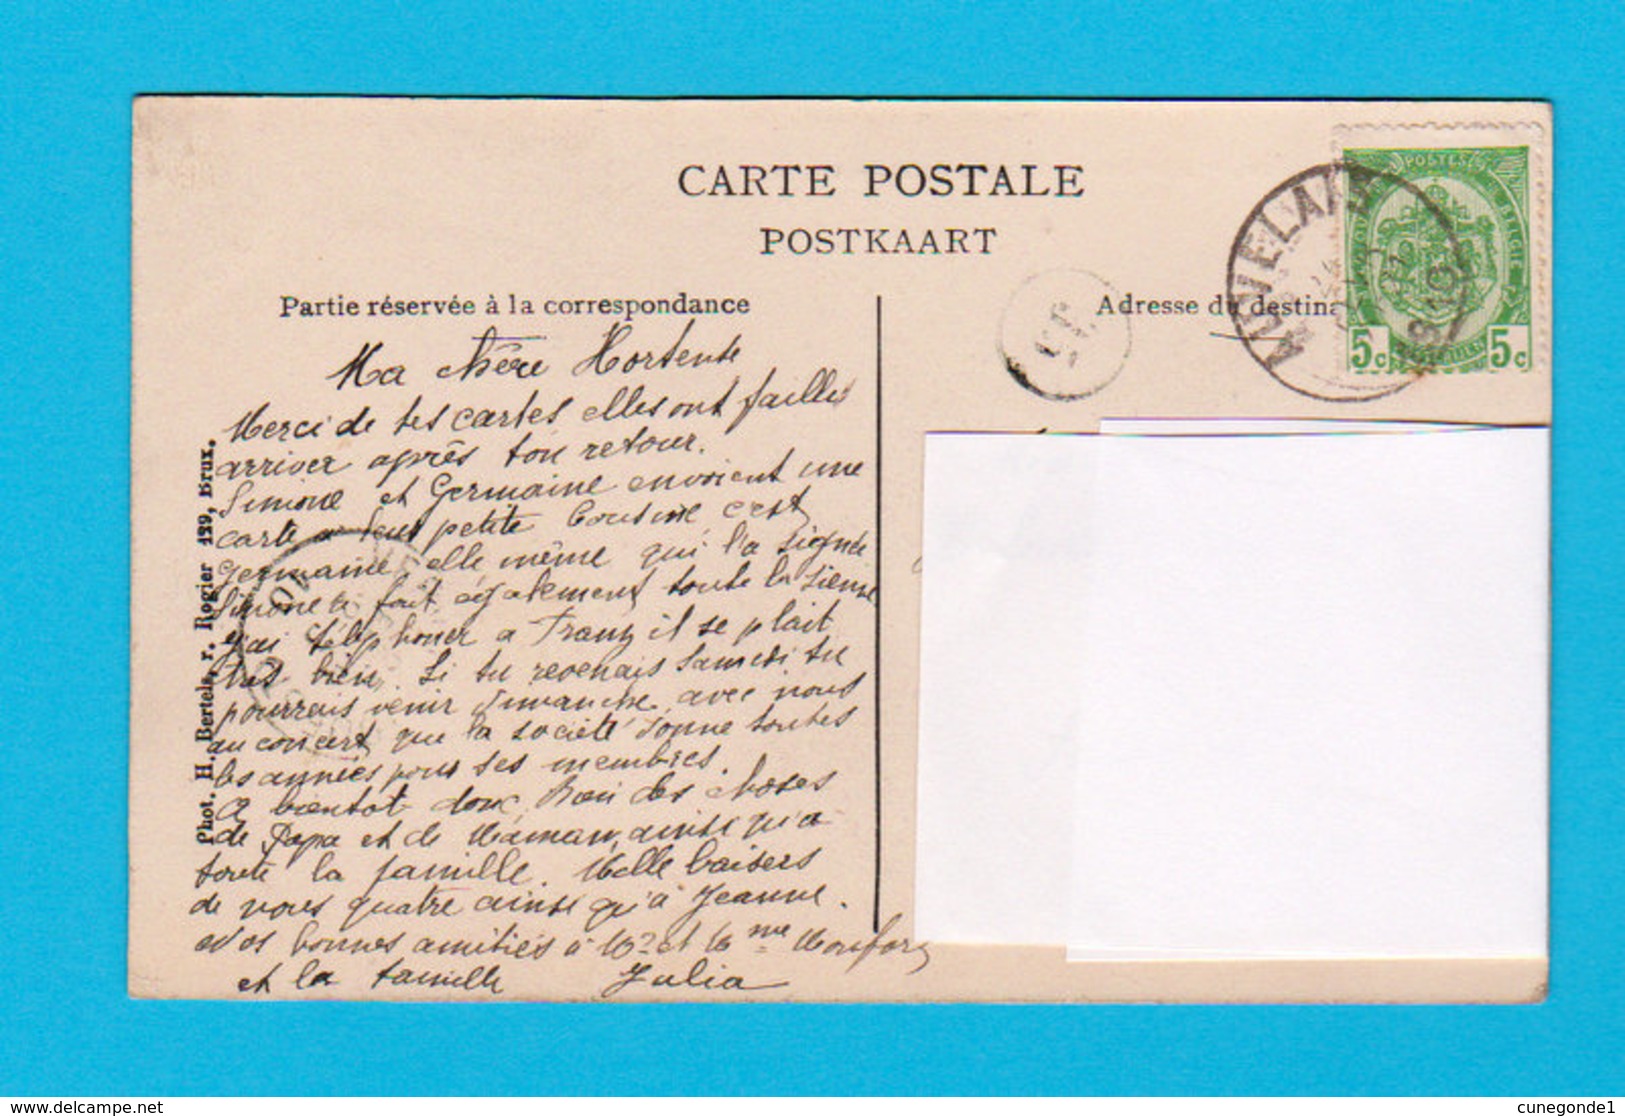 CARTE POSTALE
POSTKAART
Partie réservée à la correspondance
Adresse du destina
Ma chère Hortense
Merci de tes cartes elles ont faillis
arriver après ton retour.
Simone et Germaine envoient une
carte a leur petite Cousine c'est
Germaine, elle même qui l'a signée
Simone a fait également toute la sienne
J'ai téléphoner a Franz il se plait
très bien. Si tu revenais Samedi tu
pourrais venir Dimanche avec nous
au concert que la société donne toutes
les années pour ses membres.
A bientôt donc. Bien des choses
de Papa et de Maman, ainsi qu'a
toute la famille. Mille baisers
de nous quatre ainsi qu'à Jeanne.
Nos bonnes amitiés à Mr et Mme Monfort
et la famille Julia
Phot. H. Bertels, r. Rogier 139, Brux.
AUVELAIS
POSTES
BELGIE
5c 5c
delcampe.net
cunegonde1